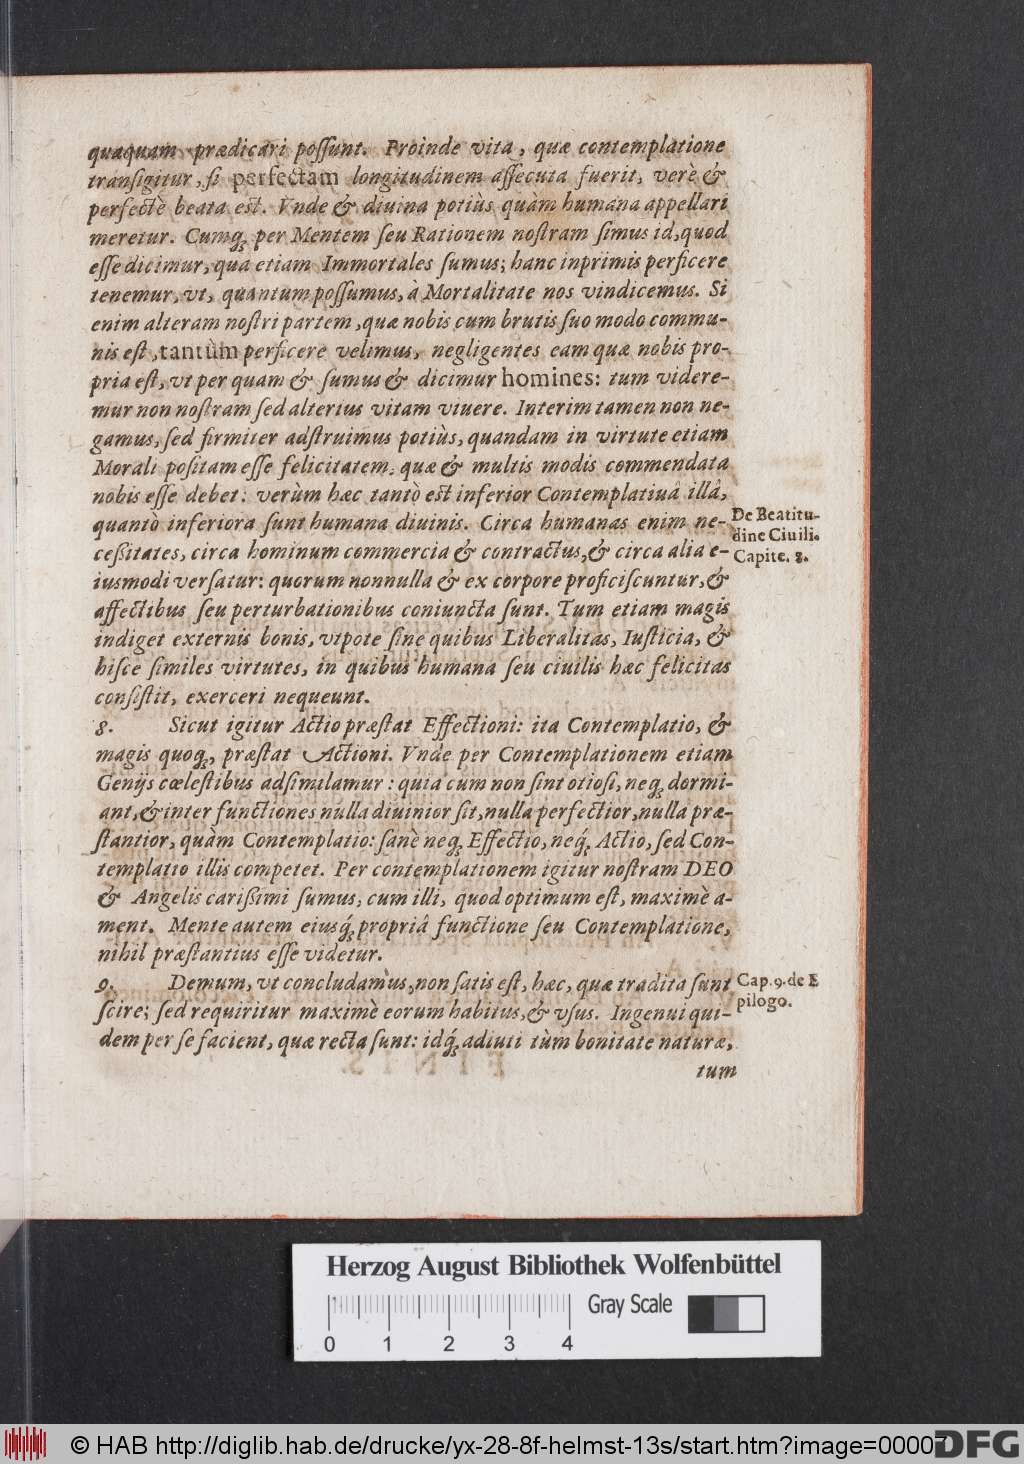 quaquam prædicari possunt. Proinde vita, quæ contemplatione
transigitur, si perfectam longitudinem assecuta fuerit, verè &
perfectè beata est. Vnde & diuina potiùs quàm humana appellari
meretur. Cumq́; per Mentem seu Rationem nostram simus id, quod
esse dicimur, qua etiam Immortales sumus; hanc inprimis perficere
tenemur, vt, quantum possumus, à Mortalitate nos vindicemus. Si
enim alteram nostri partem, quæ nobis cum brutis suo modo commu-
nis est, tantùm perficere velimus, negligentes eam quæ nobis pro-
pria est, vt per quam & sumus & dicimur homines: tum videre-
mur non nostram sed alterius vitam viuere. Interim tamen non ne-
gamus, sed firmiter adstruimus potiùs, quandam in virtute etiam
Morali positam esse felicitatem, quæ & multis modis commendata
nobis esse debet: verùm hæc tantò est inferior Contemplatiuâ illâ,
quantò inferiora sunt humana diuinis. Circa humanas enim ne-
De Beatitu-
dine Ciuili.
Capite. 8.
cessitates, circa hominum commercia & contractus, & circa alia e-
iusmodi versatur: quorum nonnulla & ex corpore proficiscuntur, &
affectibus seu perturbationibus coniuncta sunt. Tum etiam magis
indiget externis bonis, vtpote sine quibus Liberalitas, Iusticia, &
hisce similes virtutes, in quibus humana seu ciuilis hæc felicitas
consistit, exerceri nequeunt.
8. Sicut igitur Actio præstat Effectioni: ita Contemplatio, &
magis quoq;, præstat Actioni. Vnde per Contemplationem etiam
Genijs cœlestibus adsimilamur: quia cum non sint otiosi, neq; dormi-
ant, & inter functiones nulla diuinior sit, nulla perfectior, nulla præ-
stantior, quàm Contemplatio: sanè neq; Effectio, neq́; Actio, sed Con-
templatio illis competet. Per contemplationem igitur nostram DEO
& Angelis carissimi sumus, cum illi, quod optimum est, maximè a-
ment. Mente autem eiusq́; propriâ functione seu Contemplatione,
nihil præstantius esse videtur.
9. Demum, vt concludamus, non satis est, hæc, quæ tradita sunt
Cap. 9. de E
pilogo.
scire; sed requiritur maximè eorum habitus, & vsus. Ingenui qui-
dem per se facient, quæ recta sunt: idq́; adiuti tùm bonitate naturæ,
tum
Herzog August Bibliothek Wolfenbüttel
Gray Scale
0 1 2 3 4
© HAB http://diglib.hab.de/drucke/yx-28-8f-helmst-13s/start.htm?image=00007
DFG